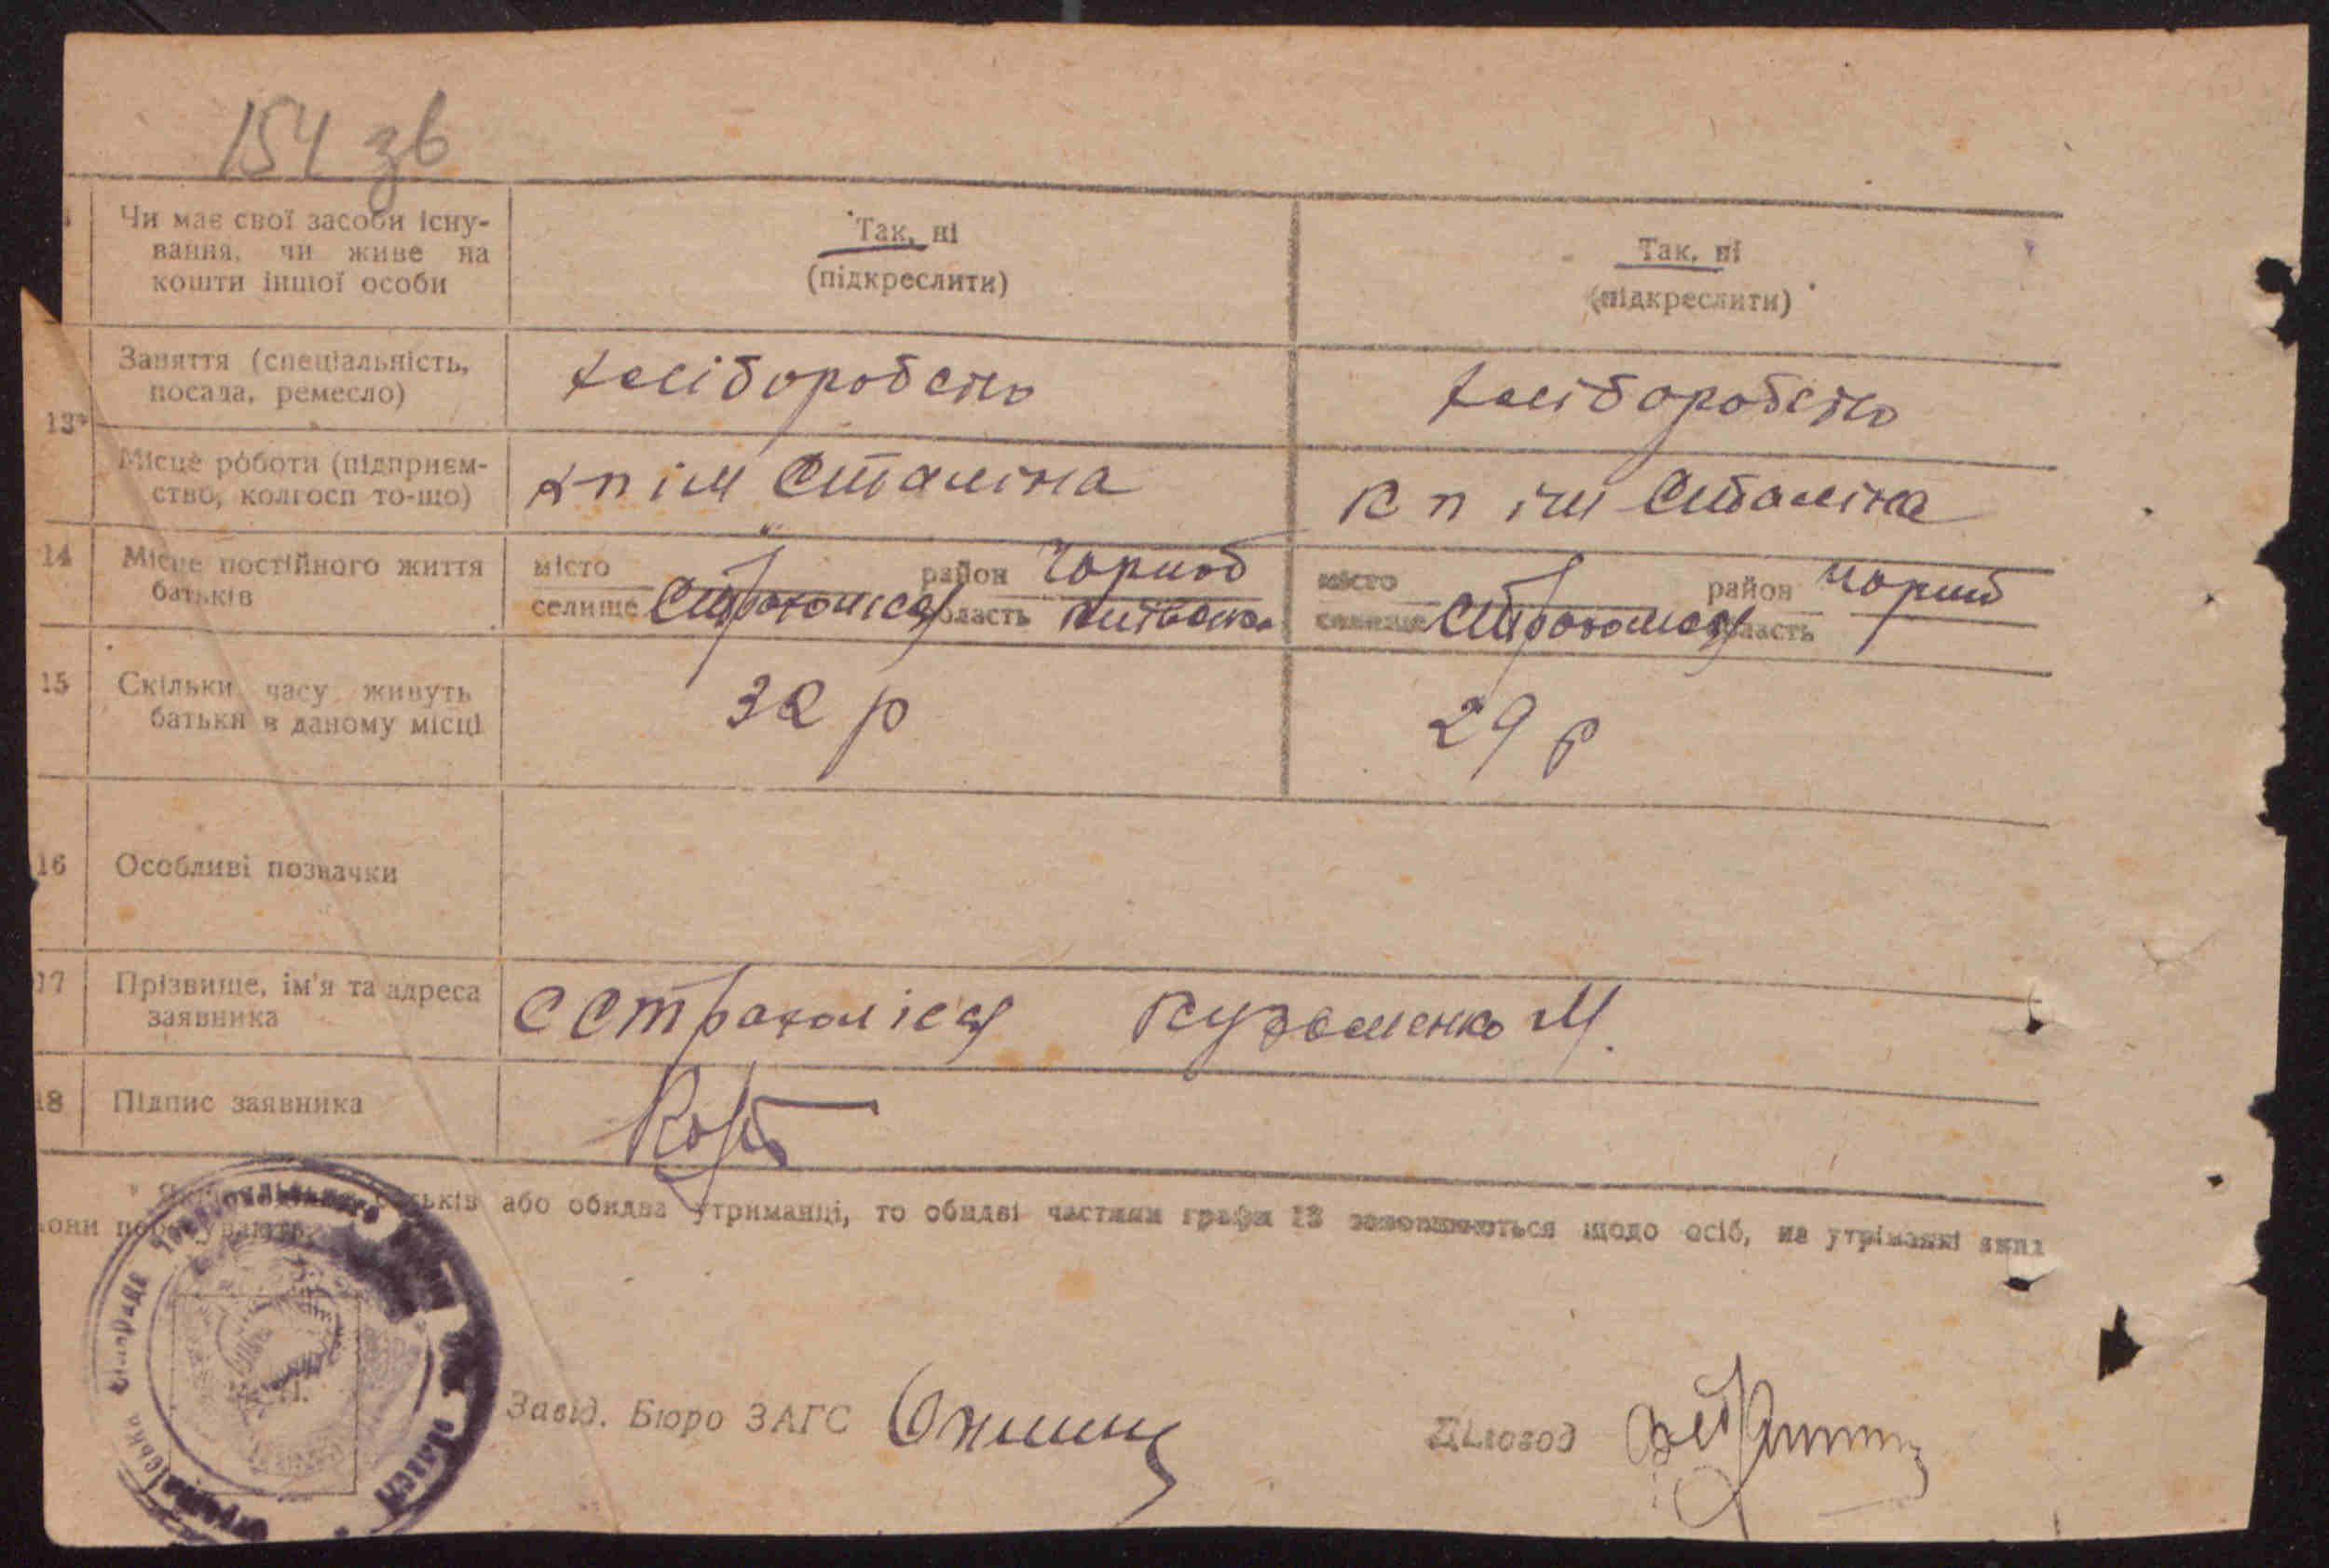 154 зв
Чи має свої засоби існу-
вання, чи живе на
кошти іншої особи
Так, ні
(підкреслити)
Так, ні
(підкреслити)
13*
Заняття (спеціальність,
посада, ремесло)
хліборобство
хліборобство
Місце роботи (підприєм-
ство, колгосп то-що)
кп ім Сталіна
к п ім Сталіна
14
Місце постійного життя
батьків
місто
селище Страхолісся
район Чорноб
область Київська
місто
селище Страхолісся
район Чорноб
область
15
Скільки часу живуть
батьки в даному місці
32 р
29 р
16
Особливі позначки
17
Прізвище, ім'я та адреса
заявника
С Страхолісся Кузьменко М.
18
Підпис заявника
батьків або обидва утриманці, то обидві частини графи 13 заповнюються щодо осіб, на утриманні яких
вони перебувають.
Завід. Бюро ЗАГС
Діловод